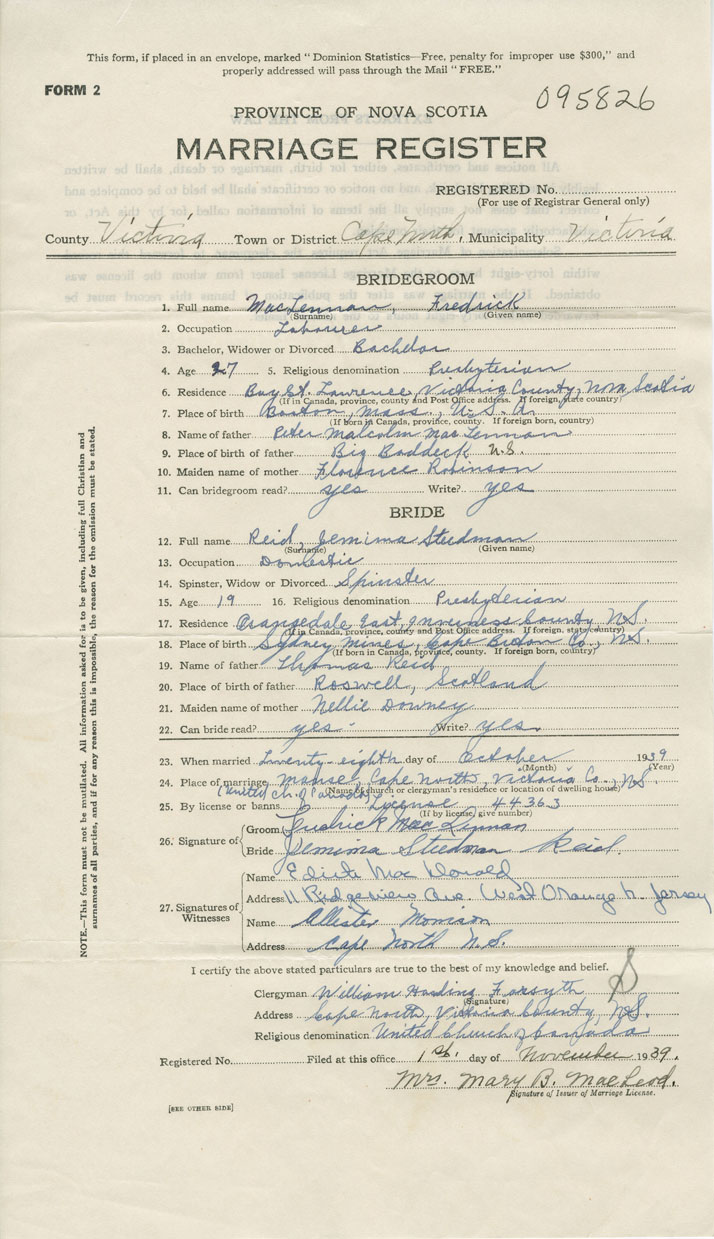 This form, if placed in an envelope, marked "Dominion Statistics—Free, penalty for improper use $300," and
properly addressed will pass through the Mail "FREE."
FORM 2
095826
PROVINCE OF NOVA SCOTIA
MARRIAGE REGISTER
REGISTERED No.
(For use of Registrar General only)
County Victoria Town or District Cape North, Municipality Victoria
BRIDEGROOM
1. Full name MacLennan, Fredrick
(Surname) (Given name)
2. Occupation Labourer
3. Bachelor, Widower or Divorced Bachelor
4. Age 27 5. Religious denomination Presbyterian
6. Residence Bay St. Lawrence, Victoria County, Nova Scotia
(If in Canada, province, county and Post Office address. If foreign, state country)
7. Place of birth Boston, Mass., U.S.A.
(If born in Canada, province, county. If foreign born, country)
8. Name of father Peter Malcolm MacLennan
9. Place of birth of father Big Baddeck N.S.
10. Maiden name of mother Florence Robinson
11. Can bridegroom read? yes Write? yes
BRIDE
12. Full name Reid, Jemima Steedman
(Surname) (Given name)
13. Occupation Domestic
14. Spinster, Widow or Divorced Spinster
15. Age 19 16. Religious denomination Presbyterian
17. Residence Orangedale East, Inverness County N.S.
(If in Canada, province, county and Post Office address. If foreign, state country)
18. Place of birth Sydney Mines, Cape Breton Co., N.S.
(If born in Canada, province, county. If foreign born, country)
19. Name of father Thomas Reid
20. Place of birth of father Roswell, Scotland
21. Maiden name of mother Nellie Downey
22. Can bride read? yes Write? yes
23. When married Twenty-eighth day of October 1939
(Month) (Year)
24. Place of marriage manse, Cape North, Victoria Co., N.S.
(United Ch. of Canada) (Name of church or clergyman's residence or location of dwelling house)
25. By license or banns License 44363
(If by license, give number)
26. Signature of
Groom Fredrick MacLennan
Bride Jemima Steedman Reid
27. Signatures of Witnesses
Name Edith MacDonald
Address 11 Ridgeview Ave. West Orange N. Jersey
Name Allister Morrison
Address Cape North N.S.
I certify the above stated particulars are true to the best of my knowledge and belief.
Clergyman William Harding Forsyth
(Signature)
Address Cape North, Victoria County, N.S.
Religious denomination United Church of Canada
Registered No. Filed at this office 1st. day of November 1939.
Mrs. Mary B. MacLeod.
Signature of Issuer of Marriage License.
[SEE OTHER SIDE]
NOTE.—This form must not be mutilated. All information asked for is to be given, including full Christian and
surnames of all parties, and if for any reason this is impossible, the reason for the omission must be stated.